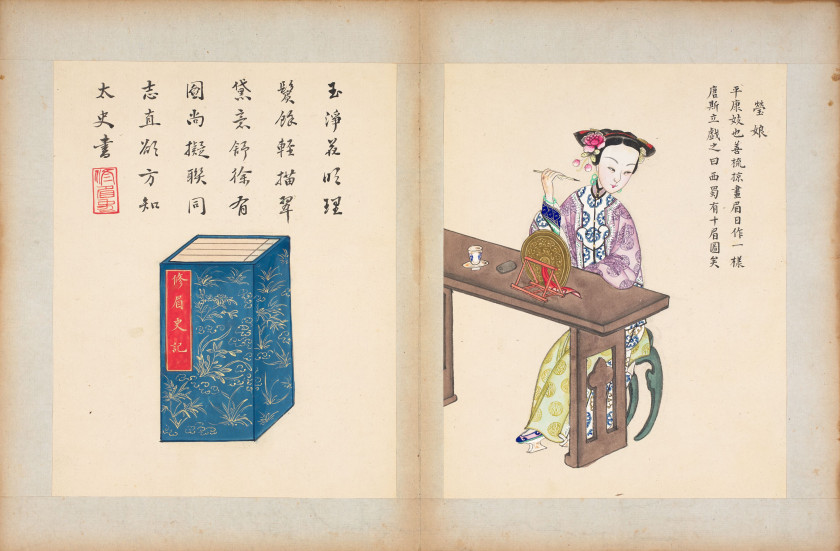 瑩娘
平康妓也善梳掠畫眉日作一樣
唐斯立戲之曰西蜀有十眉圖矣
玉淨花明理
鬢餘輕描翠
黛意舒徐有
圖尚擬聯同
志直欲方知
太史書
修眉史
修眉史記